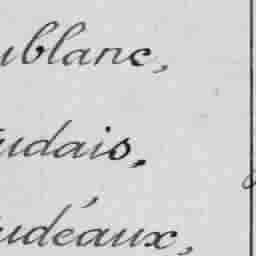 ublanc,
udais,
udéaux,